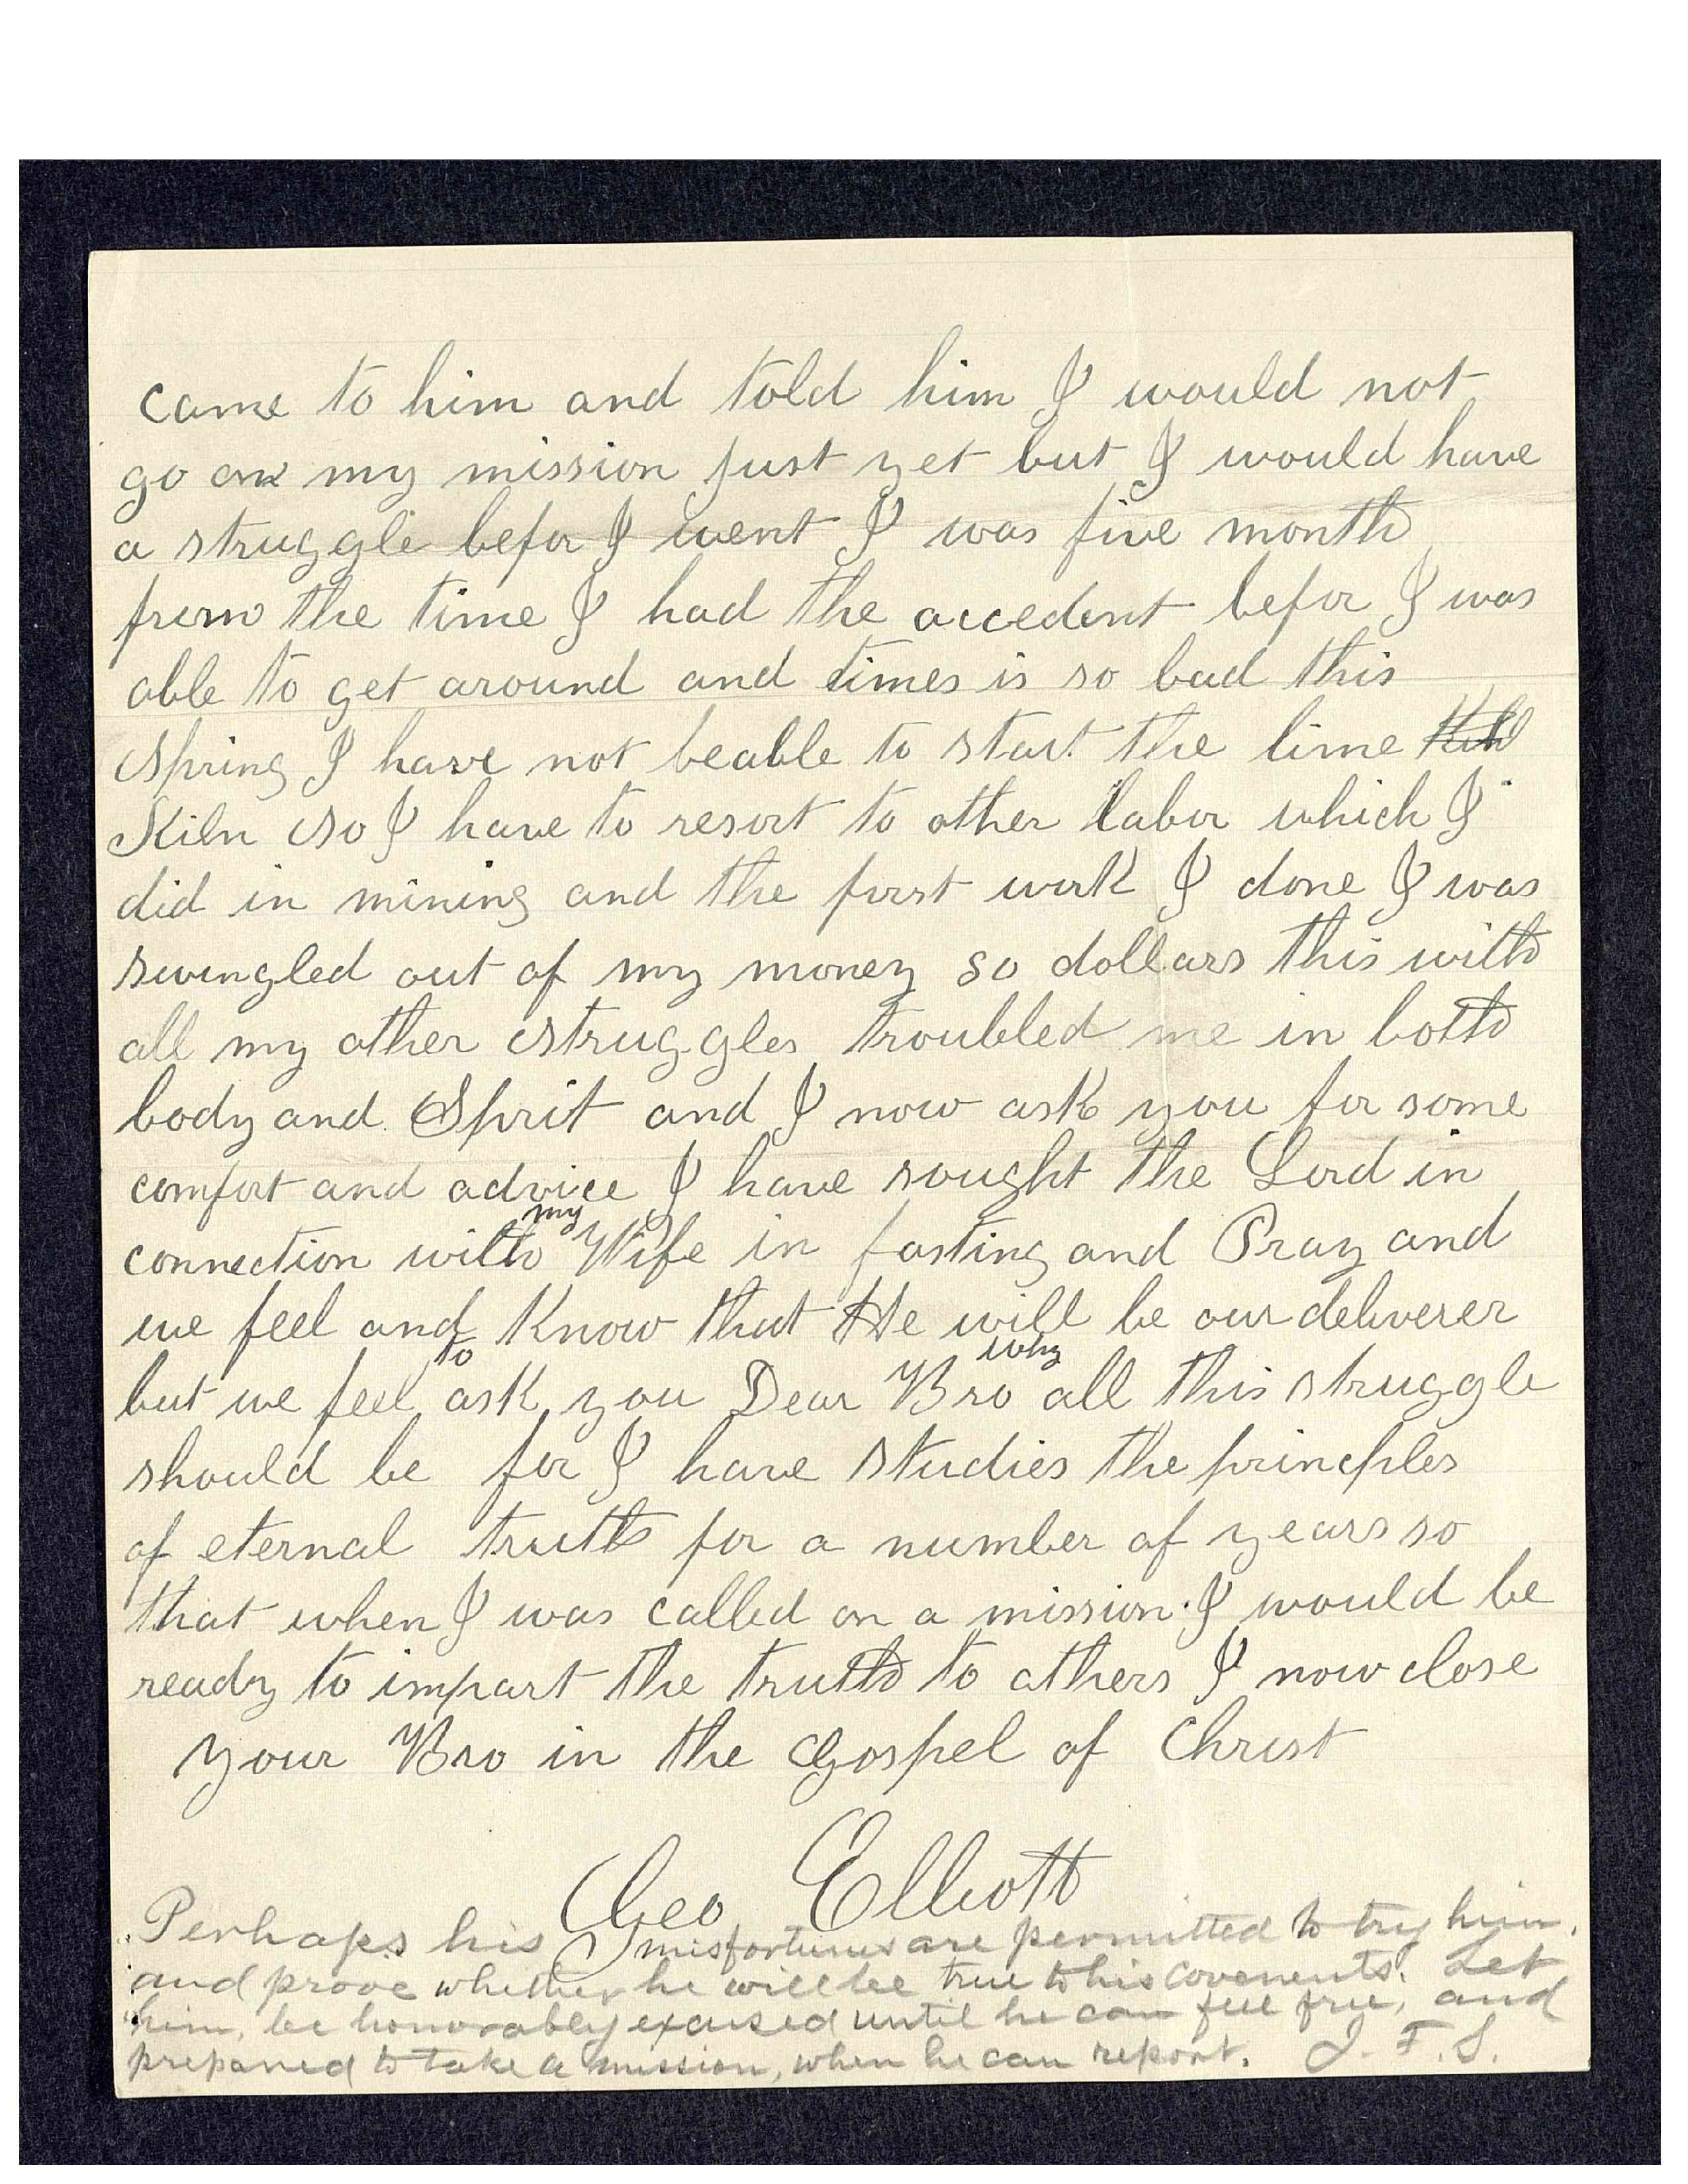 came to him and told him I would not
go on my mission just yet but I would have
a struggle befor I went I was five month
from the time I had the accedent befor I was
able to get around and times is so bad this
Spring I have not beable to start the lime
Kiln So I have to resort to other labor which I
did in mining and the first work I done I was
swingled out of my money 80 dollars this with
all my other Struggles troubled me in both
body and Sprit and I now ask you for some
comfort and advice I have sought the Lord in
connection with my Wife in fasting and Pray and
we feel and Know that He will be our deliverer
but we feel to ask you Dear Bro why all this struggle
should be for I have studies the princples
of eternal truth for a number of years so
that when I was called on a mission. I would be
ready to impart the truth to others I now close
your Bro in the Gospel of Christ
Geo Elliott
Perhaps his misfortunes are permitted to try him,
and prove whether he will be true to his covenents. Let
him, be honorably excused until he can feel free, and
prepared to take a mission, when he can report. J. F. S.